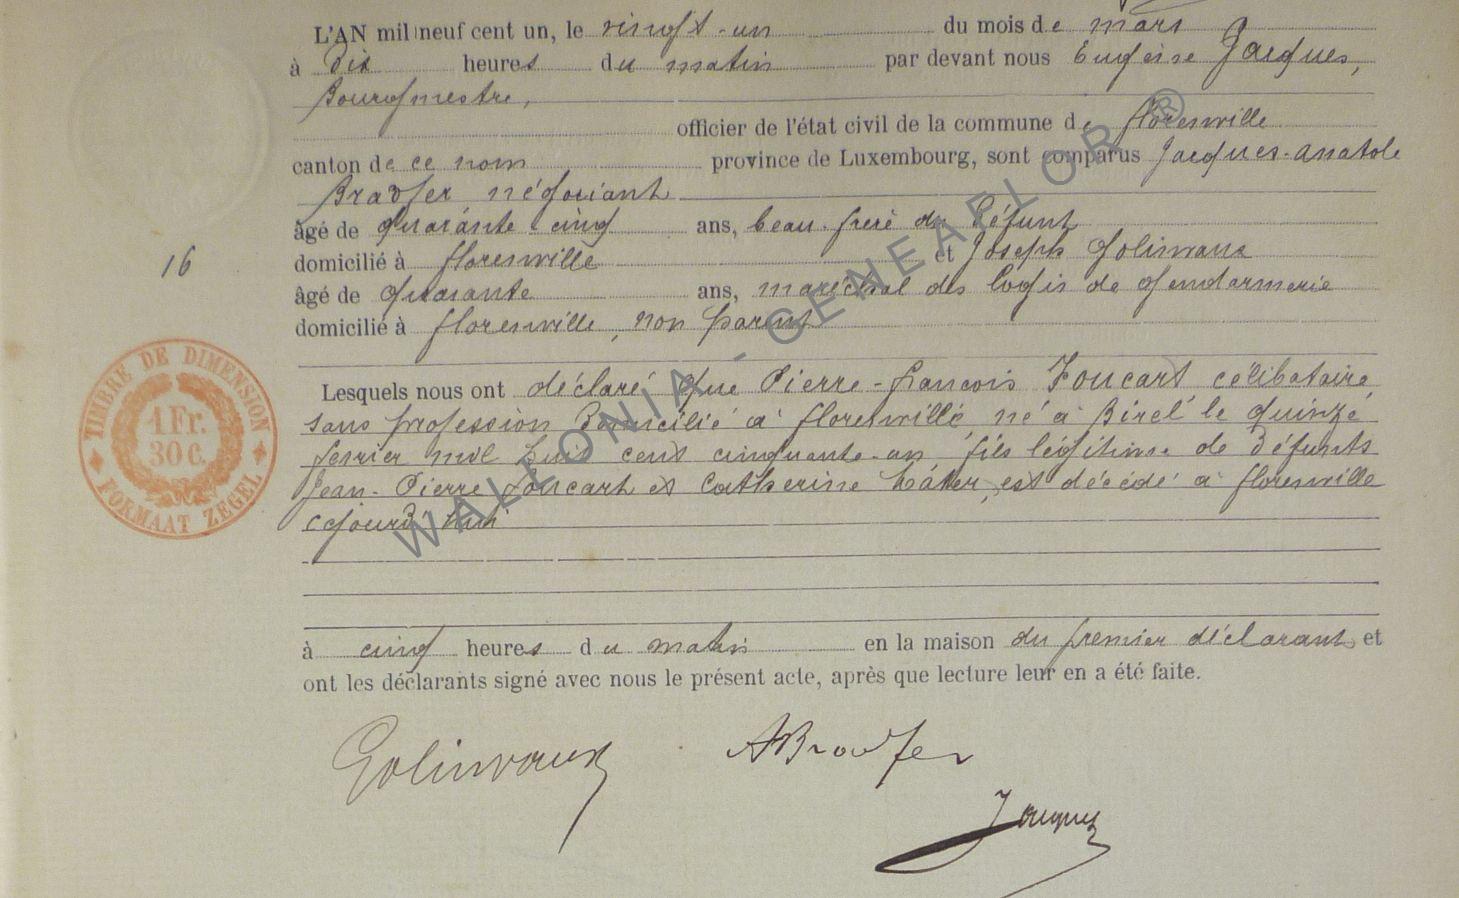 L'AN mil neuf cent un, le vingt-un du mois de mars
à dix heures du matin par devant nous Eugène Jacques,
Bourgmestre,
officier de l'état civil de la commune de florenville
canton de ce nom province de Luxembourg, sont comparus Jacques-anatole
Bradfer, négociant
âgé de quarante cinq ans, beau-frère du défunt
domicilié à florenville et Joseph Golinvaux
âgé de quarante ans, maréchal des logis de gendarmerie
domicilié à florenville, non parent
16
TIMBRE DE DIMENSION
1 Fr.
30 C.
FORMAAT ZEGEL
Lesquels nous ont déclaré que Pierre-françois Foucart célibataire
sans profession domicilié à florenville, né à le quinze
fevrier mil huit cent cinquante-un fils légitime de défunts
Jean-Pierre Foucart et Catherine est décédé à florenville
cejourd'hui
à cinq heures du matin en la maison du premier déclarant et
ont les déclarants signé avec nous le présent acte, après que lecture leur en a été faite.
Golinvaux ABradfer
Jacques
WALLONIA - GENEAFLOR ®